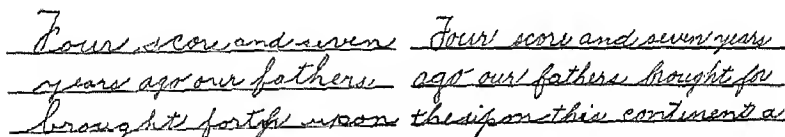 Four score and seven
years ago our fathers
brought forth upon
Four score and seven years
ago our fathers brought for
thupon this continent a